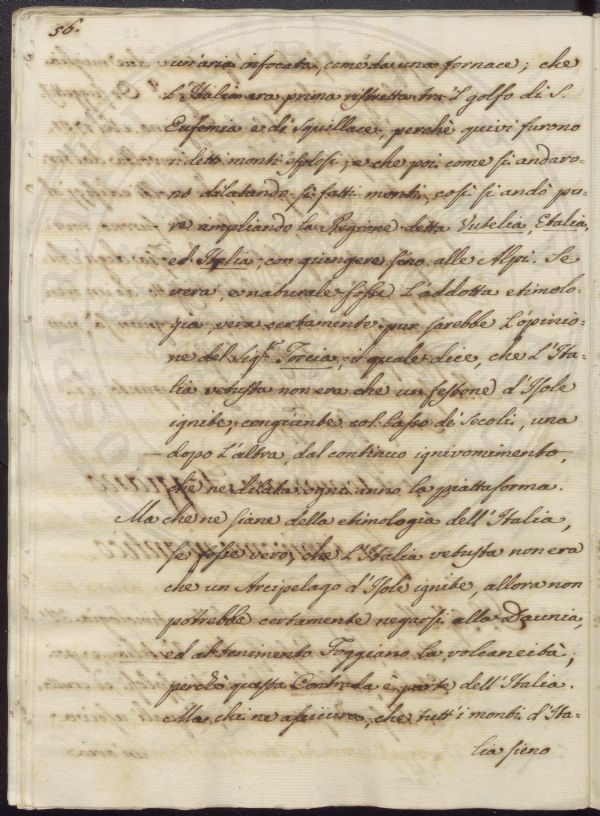 56.
un'aria infocata, come da una fornace; che
L'Italia era prima ristretta tra 'l golfo di S.
Eufemia e di Squillace, perchè quivi furono
i detti monti esplosi; e che poi come si andaro=
no dilatando sì fatti monti, così si andò pu=
re ampliando la Regione detta Vutelia, Etalia,
ed Italia, con giungere sino alle Alpi. Se
vera, e naturale fosse l'addotta etimolo=
gia, vera certamente pur sarebbe l'opinio=
ne del Sig.r Torcia, il quale dice, che l'Ita=
lia vetusta non era che un festone d'Isole
ignite, congiunte col basso de' secoli, una
dopo l'altra, dal continuo ignivomimento,
che ne dilata ogni anno la piattaforma.
Ma che ne siane della etimologia dell'Italia,
se fosse vero, che l'Italia vetusta non era
che un Arcipelago d'Isole ignite, allora non
potrebbe certamente negarsi alla Daunia,
ed al tenimento Foggiano la volcaneità,
perchè questa Contrada è parte dell'Italia.
Ma chi ne assicura, che tutt'i monti d'Ita=
lia sieno